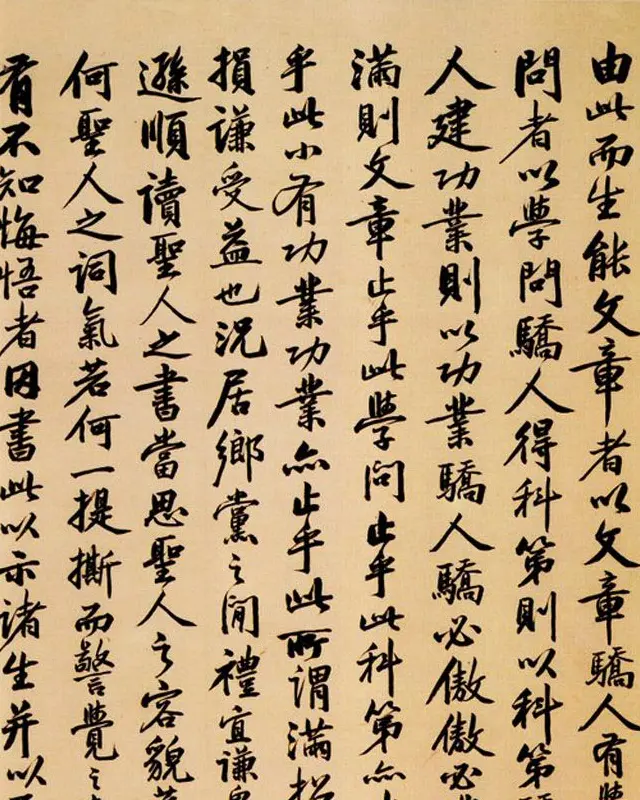 由此而生能文章者以文章驕人有
問者以學問驕人得科第則以科第
人建功業則以功業驕人驕必傲傲必
滿則文章止乎此學問止乎此科第亦
乎此小有功業功業亦止乎此所謂滿招
損謙受益也況居鄉黨之間禮宜謙
遜順讀聖人之書當思聖人之容貌若
何聖人之詞氣若何一提撕而警覺之
有不知悔悟者因書此以示諸生并以